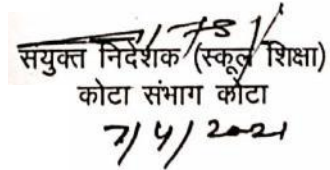 संयुक्त निदेशक (स्कूल शिक्षा)
कोटा संभाग कोटा
7/4/2021